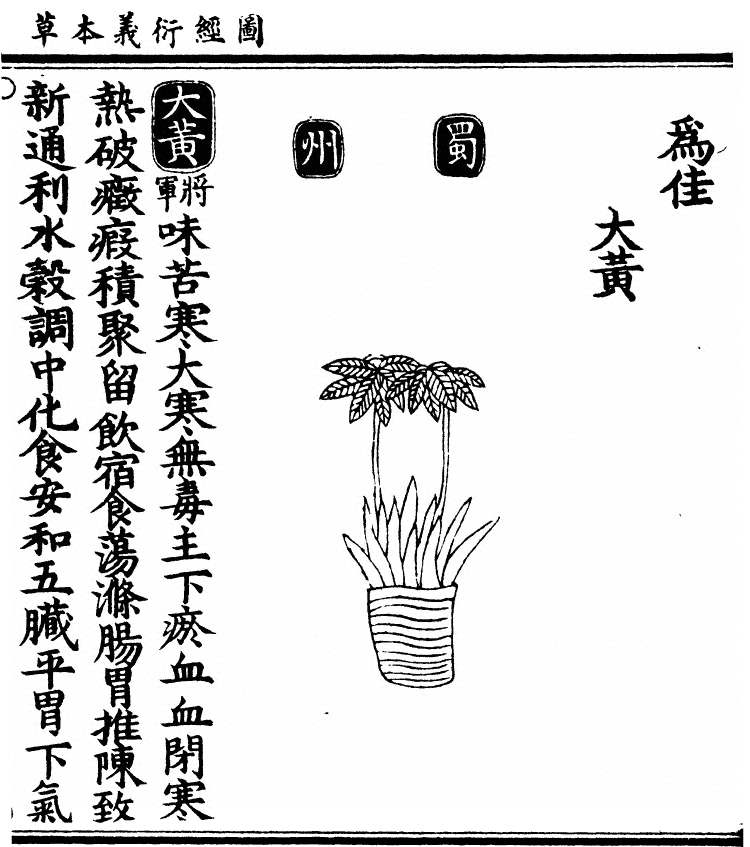 圖經衍義本草
為佳
大黃
蜀
州
大黃將軍味苦寒大寒無毒主下瘀血血閉寒
熱破癥瘕積聚留飲宿食蕩滌腸胃推陳致
新通利水穀調中化食安和五臟平胃下氣